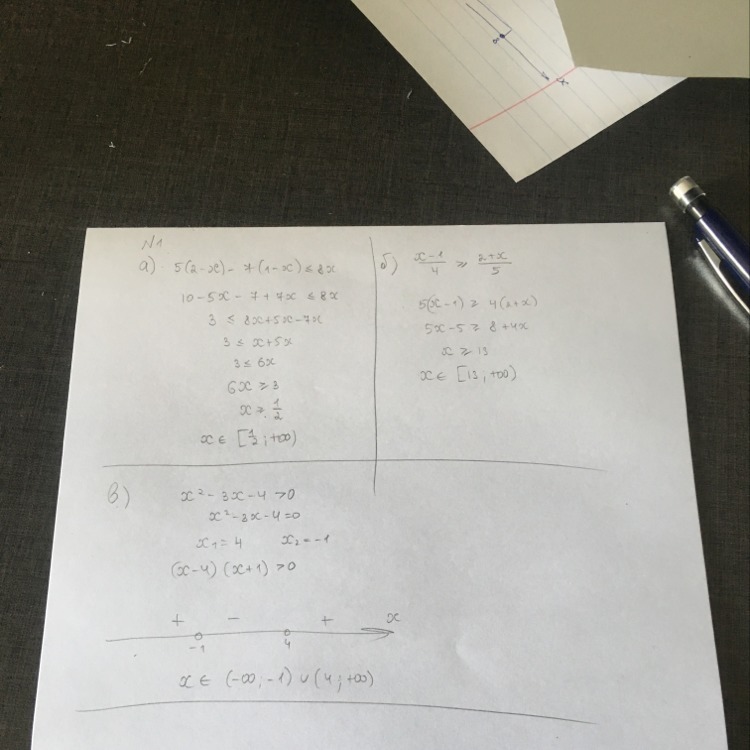 N1
а) 5(2-x) - 7(1-x) ≤ 8x
10-5x-7+7x ≤ 8x
3 ≤ 8x+5x-7x
3 ≤ x+5x
3 ≤ 6x
6x ≥ 3
x ≥ 1/2
x ∈ [1/2; +∞)
б) (x-1)/4 ≥ (2+x)/5
5(x-1) ≥ 4(2+x)
5x-5 ≥ 8+4x
x ≥ 13
x ∈ [13; +∞)
в) x²-3x-4>0
x²-3x-4=0
x₁=4 x₂=-1
(x-4)(x+1)>0
+ - + x
-1 4
x ∈ (-∞; -1) ∪ (4; +∞)